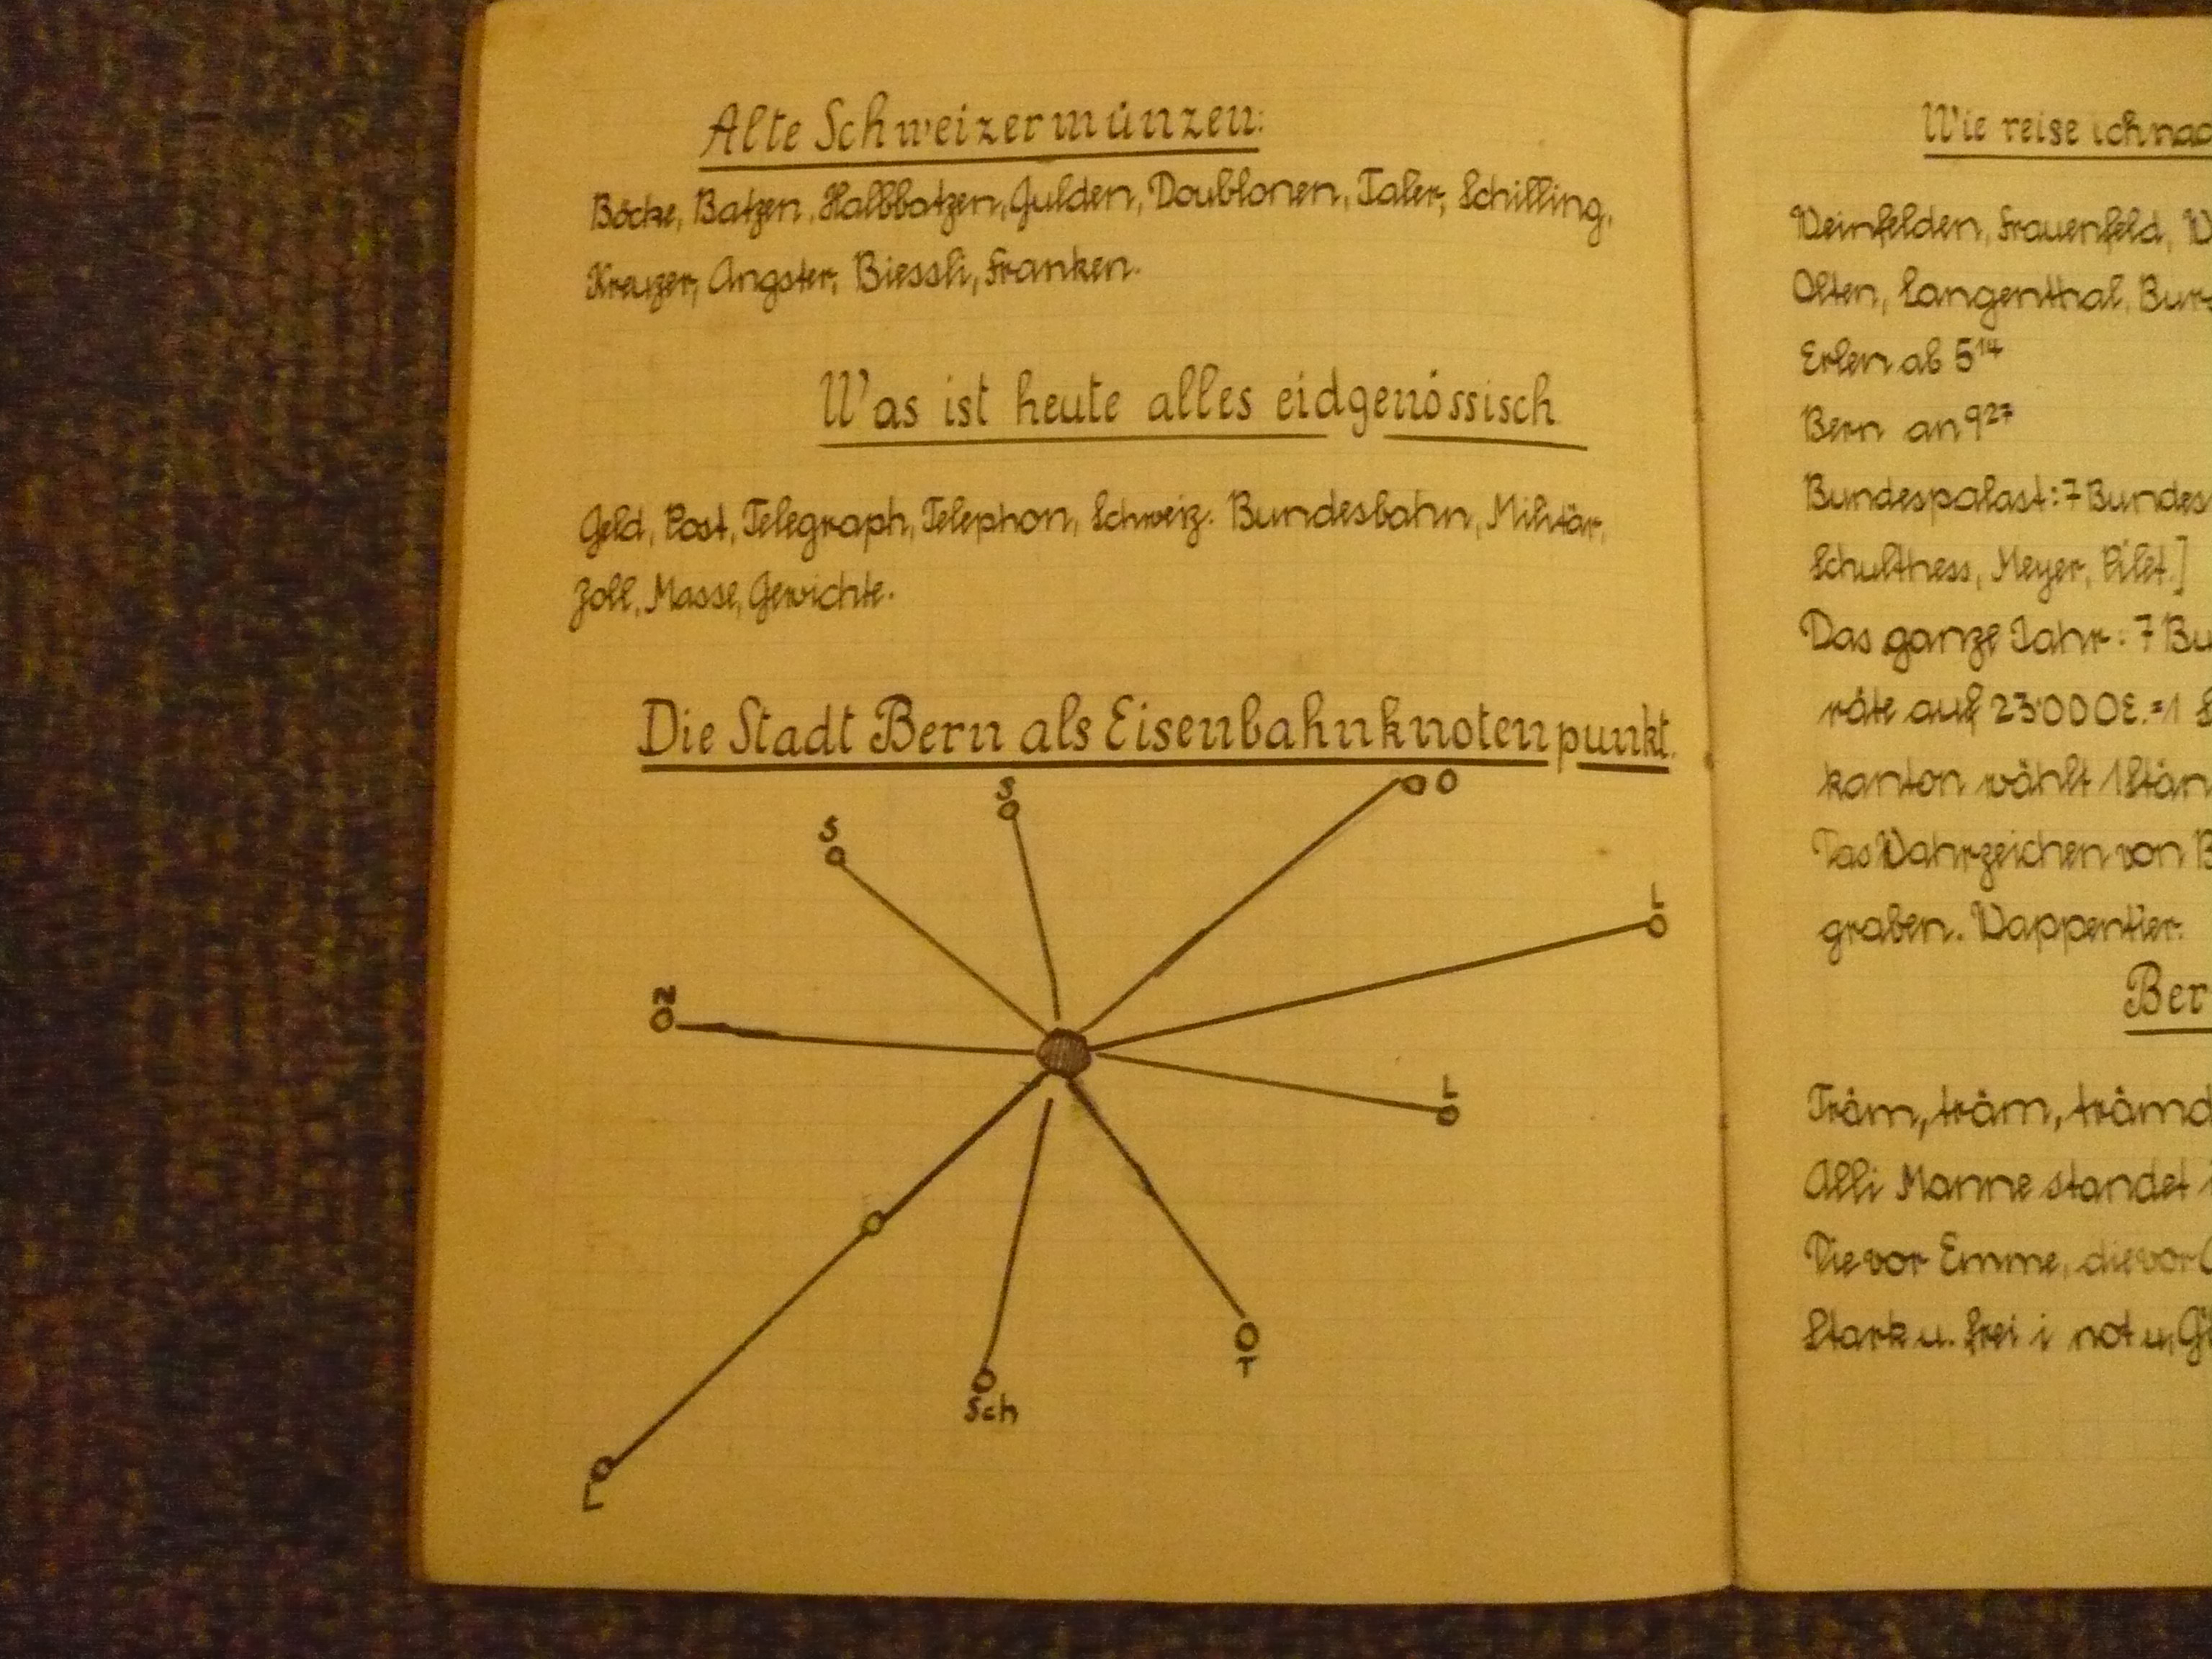 Alte Schweizermünzen:
Böcke, Batzen, Halbbatzen, Gulden, Doublonen, Taler, Schilling,
Kreuzer, Angster, Biessli, Franken.
Was ist heute alles eidgenössisch
Geld, Post, Telegraph, Telephon, Schweiz. Bundesbahn, Militär,
Zoll, Masse, Gewichte.
Die Stadt Bern als Eisenbahnknotenpunkt.
S
S
O
L
N
L
T
Sch
L
Wie reise ich nac
Weinfelden, Frauenfeld, W
Olten, Langenthal, Bur
Erlen ab 5¹⁴
Bern an 9²⁷
Bundespalast: 7 Bundes
Schulthess, Meyer, Pilet.]
Das ganze Jahr: 7 Bu
räte auf 23'000 E. = 1
kanton wählt 1 Stän
Das Wahrzeichen von B
graben. Wappentier.
Ber
Träm, träm, trämd
Alli Manne standet i
Die vor Emme, die vor
Stark u. frei i not u, G